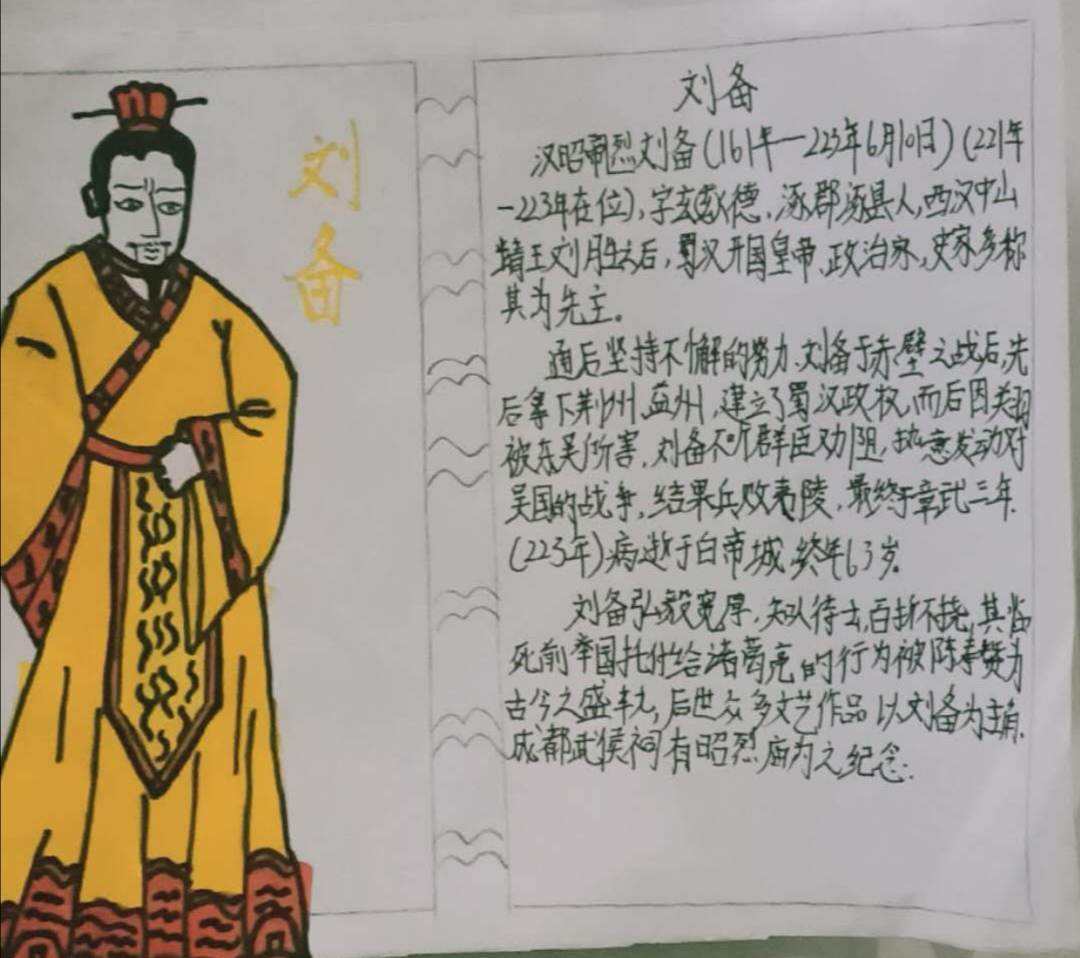 刘备
刘备
汉昭烈刘备(161年—223年6月10日)(221年
-223年在位),字玄德,涿郡涿县人,西汉中山
靖王刘胜之后,蜀汉开国皇帝、政治家,史家多称
其为先主。
通后坚持不懈的努力,刘备于赤壁之战后,先
后拿下荆州、益州,建立了蜀汉政权,而后因关羽
被东吴所害,刘备不听群臣劝阻,执意发动对
吴国的战争,结果兵败夷陵,最终于章武三年
(223年)病逝于白帝城,终年63岁
刘备弘毅宽厚,知人待士,百折不挠,其临
死前举国托付给诸葛亮的行为被陈寿赞为
古今之盛轨,后世众多文艺作品以刘备为主角,
成都武侯祠有昭烈庙为之纪念.